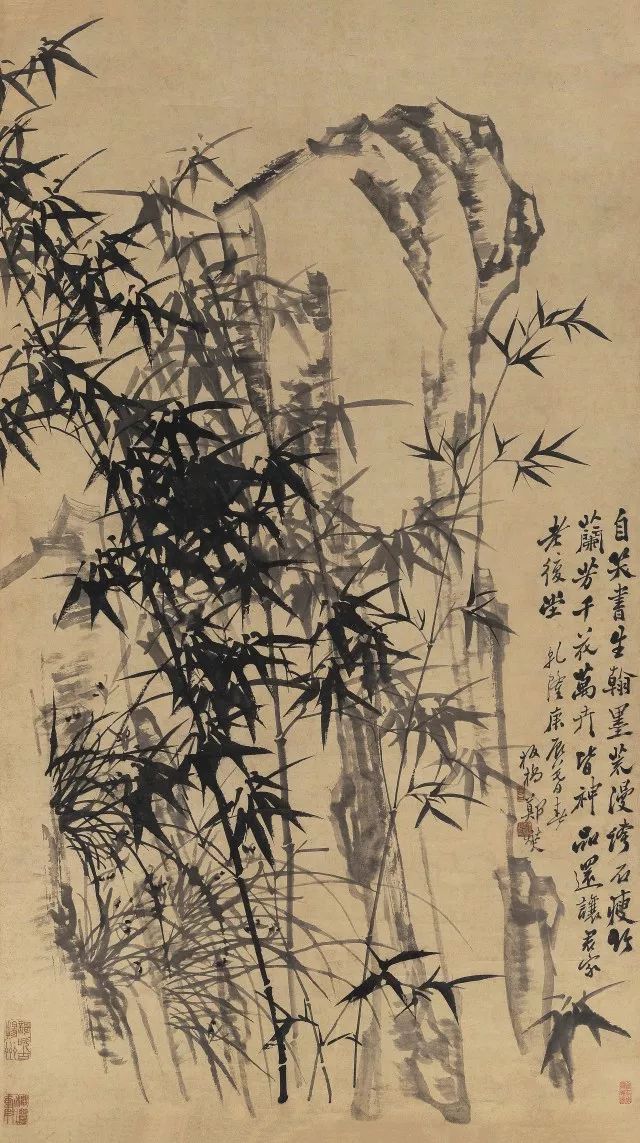 自笑書生翰墨荒漫誇石瘦竹
蘭芳千花萬卉皆神品還讓君家
老復堂 乾隆庚辰暮春
板橋鄭燮